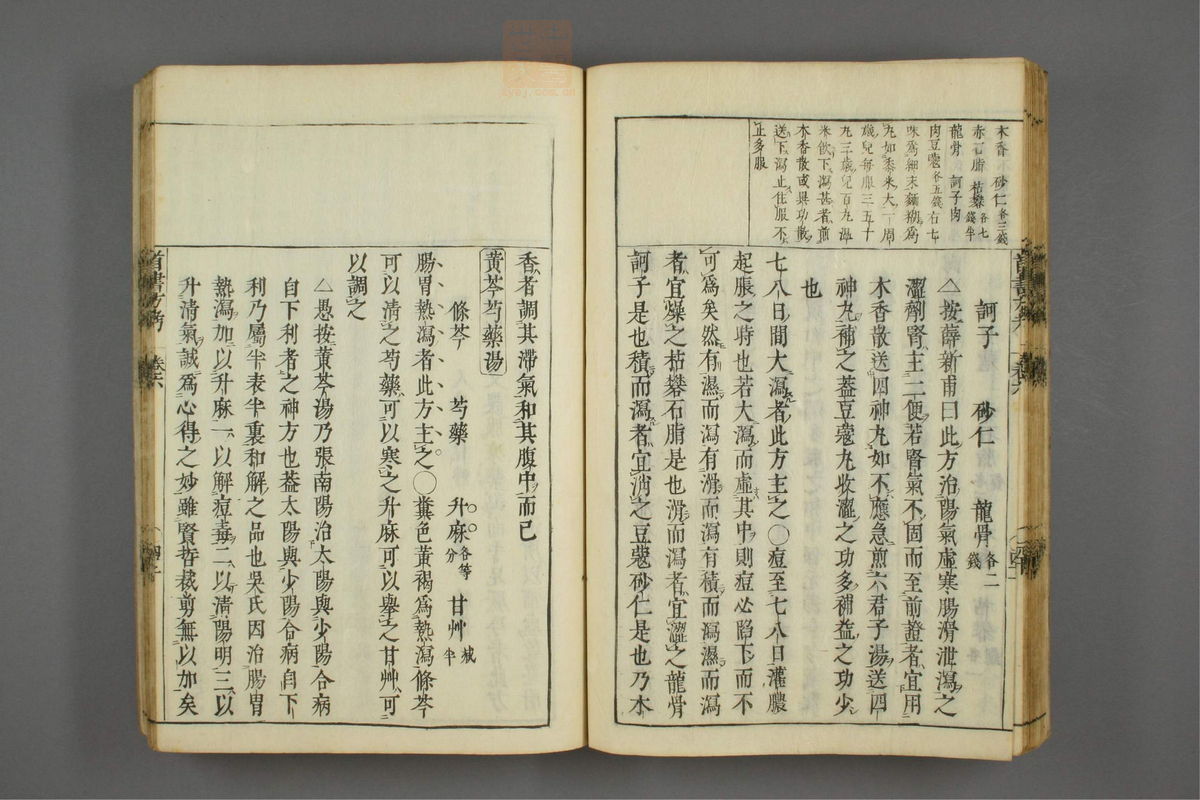 木香 砂仁各三錢
赤石脂 枯礬各七錢半
龍骨 訶子肉
肉豆蔻各五錢右七
味爲細末麵糊爲
丸如黍米大一周
歲兒每服三五十
丸三歲兒百丸溫
米飲下瀉甚者煎
木香散或異功散
送下瀉止住服不
止多服
訶子 砂仁 龍骨各二錢
△按薛新甫曰此方治陽氣虛寒腸滑泄瀉之
澀劑腎主二便若腎氣不固而至前證者宜用
木香散送四神丸如不應急煎六君子湯送四
神丸補之葢豆蔻丸收澀之功多補益之功少
也
七八日間大瀉者此方主之○痘至七八日灌膿
起脹之時也若大瀉而虛其中則痘必陷下而不
可爲矣然有濕而瀉有滑而瀉有積而瀉濕而瀉
者宜燥之枯礬石脂是也滑而瀉者宜澀之龍骨
訶子是也積而瀉者宜消之豆蔻砂仁是也乃木
首書方考 卷六
香者調其滯氣和其腹中而已
黃芩芍藥湯
條芩 芍藥 升麻各等分 甘艸減半
腸胃熱瀉者此方主之○糞色黃褐爲熱瀉條芩
可以清之芍藥可以寒之升麻可以舉之甘艸可
以調之
△愚按黃芩湯乃張南陽治太陽與少陽合病
自下利者之神方也葢太陽與少陽合病自下
利乃屬半表半裏和解之品也吳氏因治腸胃
熱瀉加以升麻一以解痘毒二以清陽明三以
升清氣誠爲心得之妙雖賢哲裁剪無以加矣
首書方考 卷六